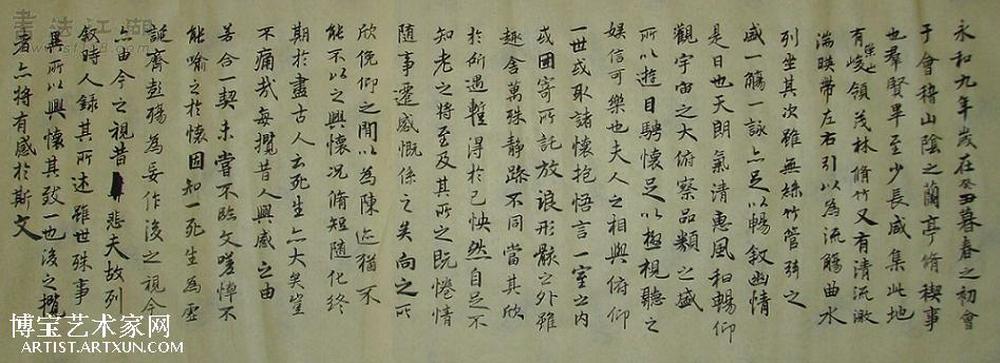 永和九年歲在癸丑暮春之初會
于會稽山陰之蘭亭脩稧事
也羣賢畢至少長咸集此地
有崇山峻領茂林脩竹又有清流激
湍暎帶左右引以為流觴曲水
列坐其次雖無絲竹管弦之
盛一觴一詠亦足以暢敘幽情
是日也天朗氣清惠風和暢仰
觀宇宙之大俯察品類之盛
所以遊目騁懷足以極視聽之
娛信可樂也夫人之相與俯仰
一世或取諸懷抱悟言一室之內
或因寄所託放浪形骸之外雖
趣舍萬殊靜躁不同當其欣
於所遇暫得於己怏然自足不
知老之將至及其所之既惓情
隨事遷感慨係之矣向之所
欣俛仰之閒以為陳迹猶不
能不以之興懷況脩短隨化終
期於盡古人云死生亦大矣豈
不痛哉每攬昔人興感之由
若合一契未嘗不臨文嗟悼不
能喻之於懷固知一死生為虛
誕齊彭殤為妄作後之視今
亦由今之視昔悲夫故列
敘時人錄其所述雖世殊事
異所以興懷其致一也後之攬
者亦將有感於斯文
書法江湖
博宝艺术家网
ARTIST.ARTXUN.COM